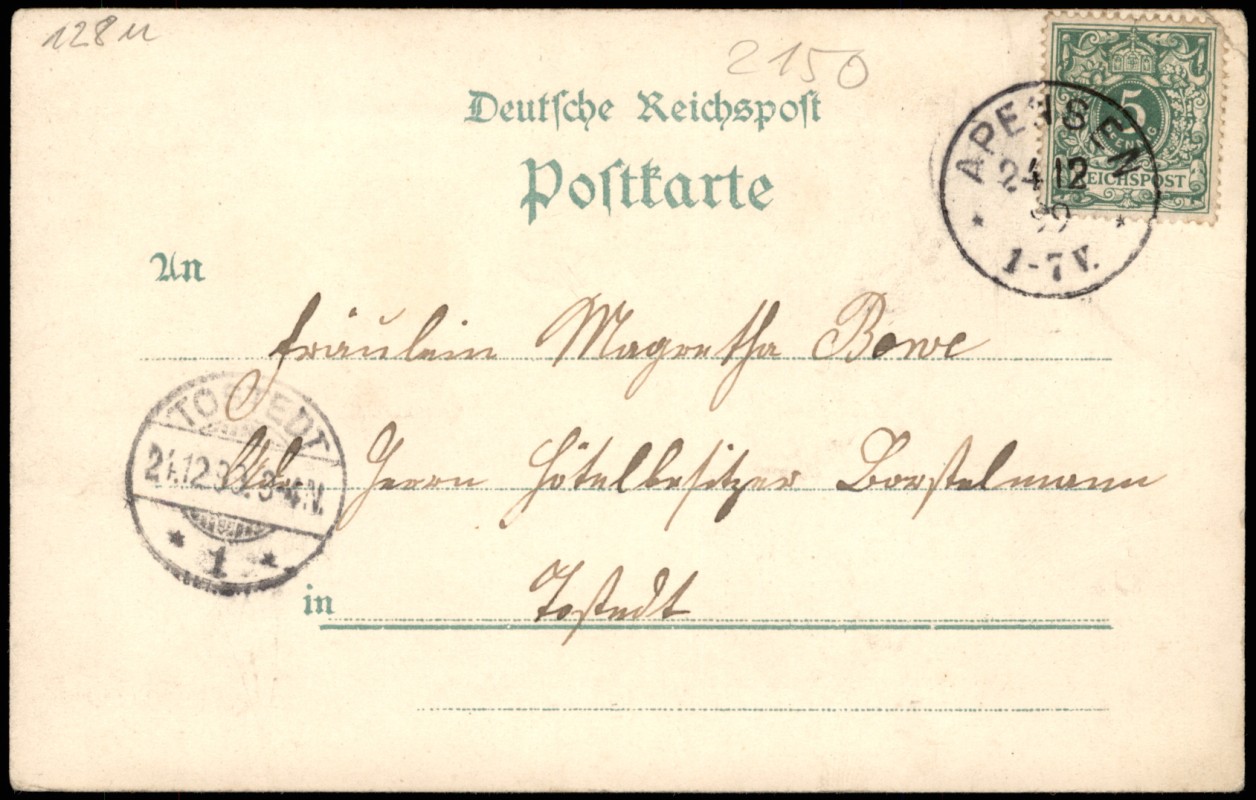 128 u
2150
Deutsche Reichspost
Postkarte
5
PFENNIG
REICHSPOST
APENSEN
24 12
99
1-7 V.
An
Fräulein Magretha Bowe
TOSTEDT
24.12.99. 3-4 N.
1
Adr. Herrn Hôtelbesitzer Borstelmann
in Tostedt